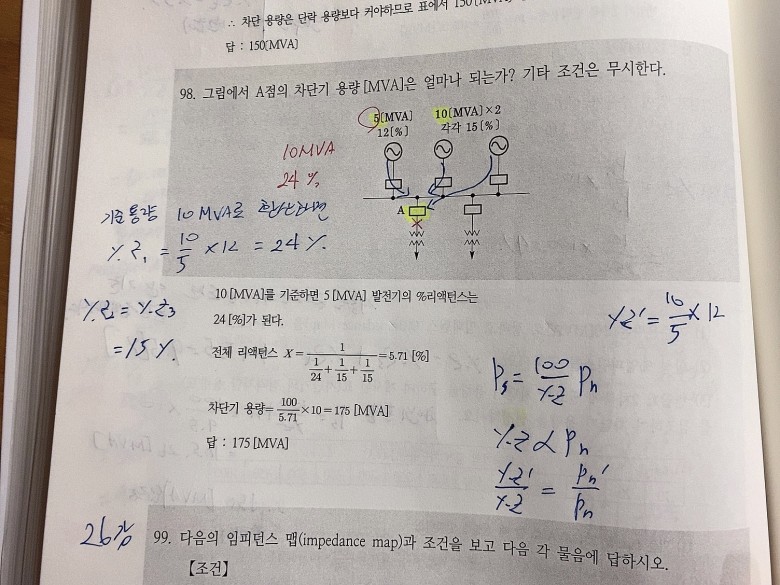 ∴ 차단 용량은 단락 용량보다 커야하므로 표에서 150[MVA]
답 : 150[MVA]
98. 그림에서 A점의 차단기 용량[MVA]은 얼마나 되는가? 기타 조건은 무시한다.
5[MVA] 10[MVA]×2
12[%] 각각 15[%]
10MVA
24 %
A
기준용량 10 MVA로 환산하면
%Z₁ = 10/5 ×12 = 24 %.
10[MVA]를 기준하면 5[MVA] 발전기의 %리액턴스는
24[%]가 된다.
%Z₂ = %Z₃
=15 %.
%Z' = 10/5 × 12
전체 리액턴스 X = 1/(1/24 + 1/15 + 1/15) = 5.71 [%]
Ps = 100/%Z Pn
차단기 용량 = 100/5.71 ×10 = 175 [MVA]
답 : 175[MVA]
%Z ∝ Pn
%Z'/%Z = Pn'/Pn
99. 다음의 임피던스 맵(impedance map)과 조건을 보고 다음 각 물음에 답하시오.
【조건】